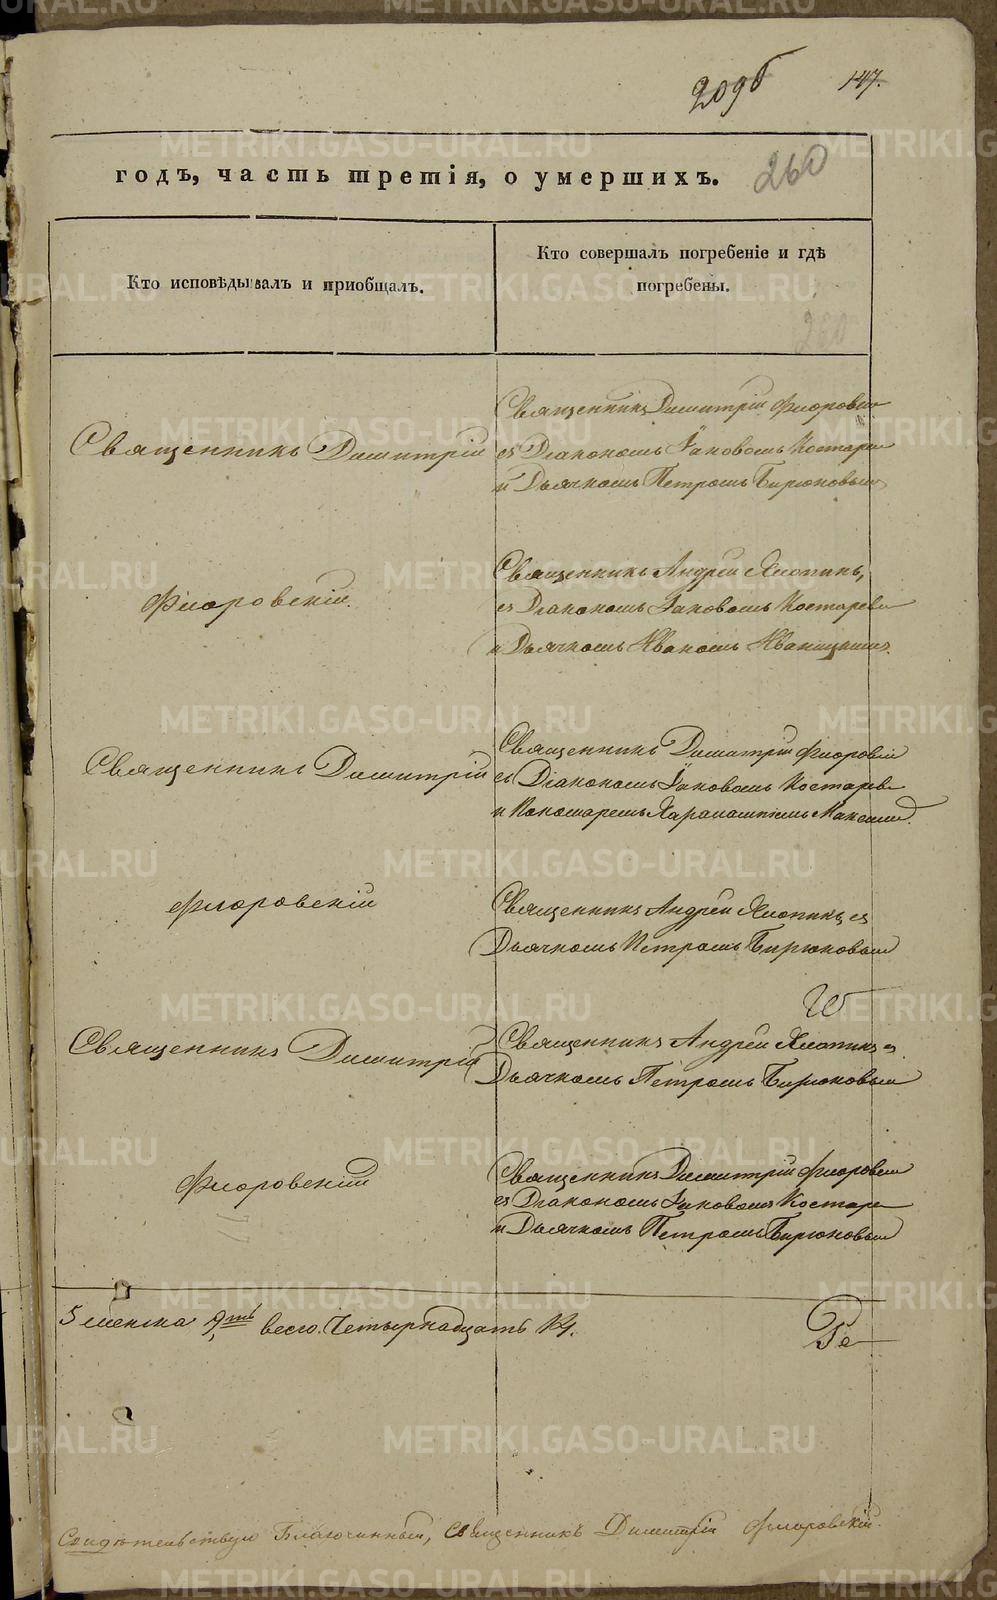 209б 147.
годъ, часть третія, о умершихъ. 260
Кто исповѣдывалъ и приобщалъ.
Кто совершалъ погребеніе и гдѣ
погребены.
Священникъ Димитрій
Флоровскій.
Священникъ Димитрій Флоровскій
съ Діакономъ Іаковомъ Костарев
и Дьячкомъ Петромъ Бирюковым
Священникъ Андрей Хлопинъ,
съ Діакономъ Іаковомъ Костарев
и Дьячкомъ Иваномъ Иваницкимъ.
Священникъ Димитрій
Флоровскій
Священникъ Димитрій Флоровскій
съ Діакономъ Іаковомъ Костарев
и Пономаремъ Харалампіемъ
Священникъ Андрей Хлопинъ съ
Дьячкомъ Петромъ Бирюковым
Священникъ Димитрій
Флоровскій
Священникъ Андрей Хлопинъ с
Дьячкомъ Петромъ Бирюковым
Священникъ Димитрій Флоровскій
съ Діакономъ Іаковомъ Костаре
и Дьячкомъ Петромъ Бирюковым
5 женска 9ть всего Четырнадцать 14.
Свидѣтельствую Благочинный, Священникъ Димитрій Флоровскій.
METRIKI.GASO-URAL.RU